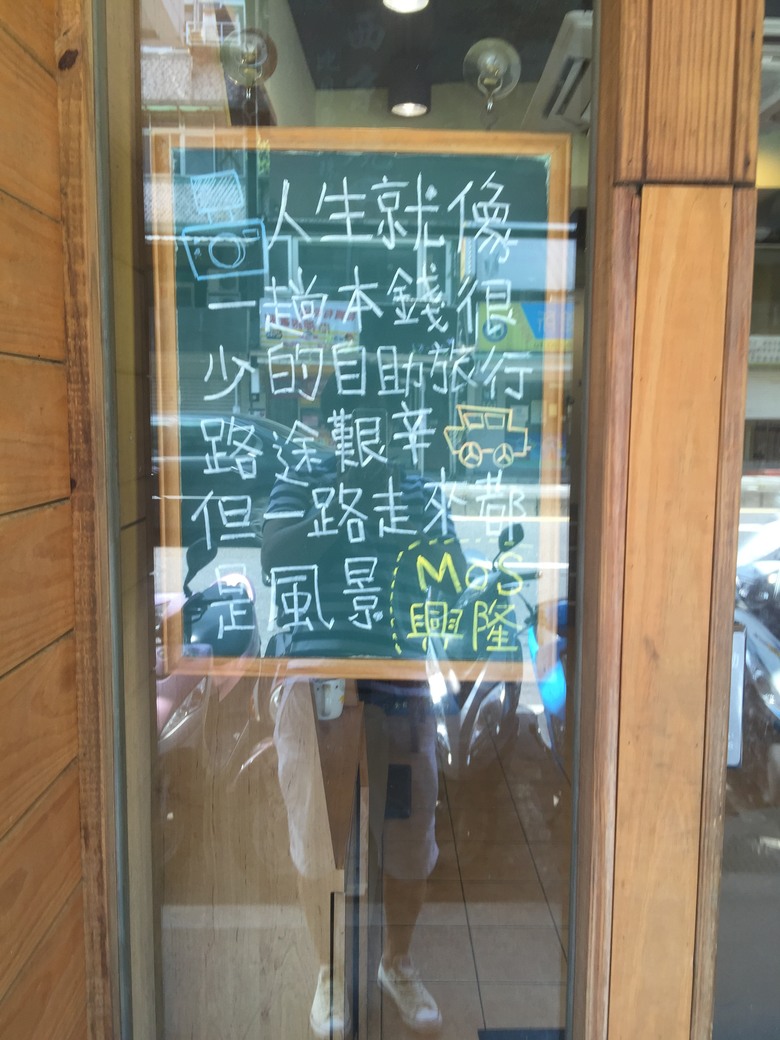 人生就像
一趟本錢很
少的自助旅行
路途艱辛
但一路走來都
是風景
MOS
興隆